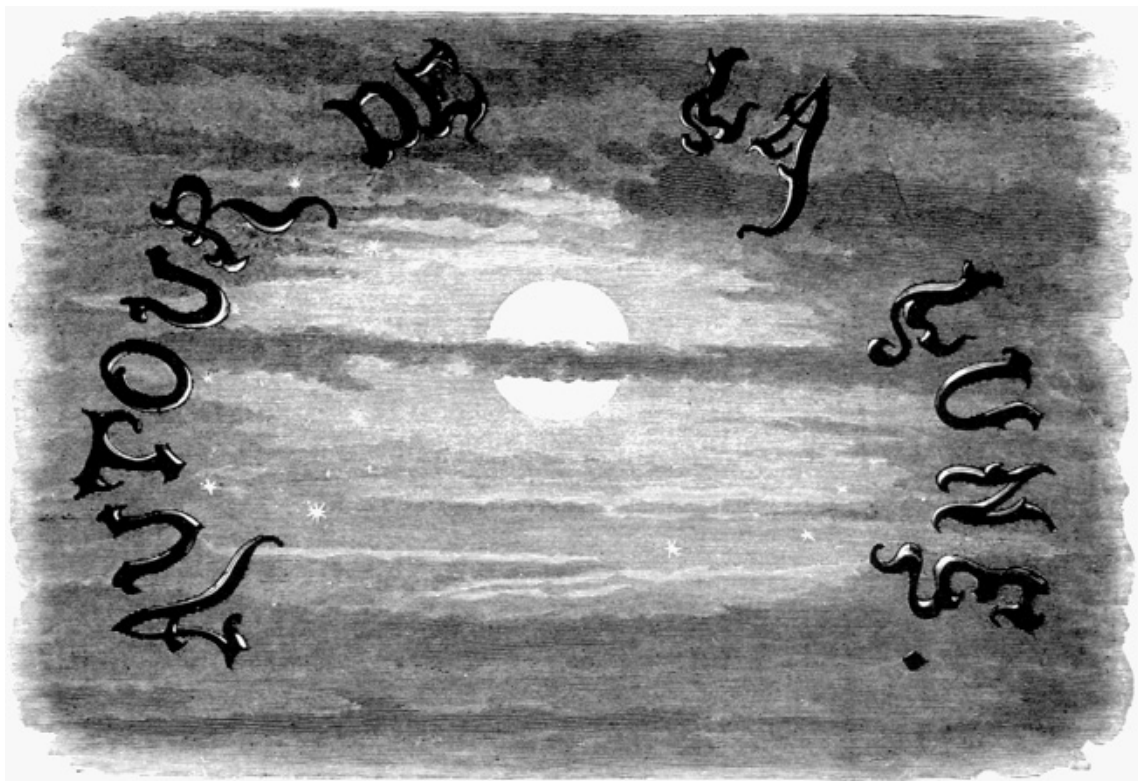 AUTOUR DE LA LUNE.